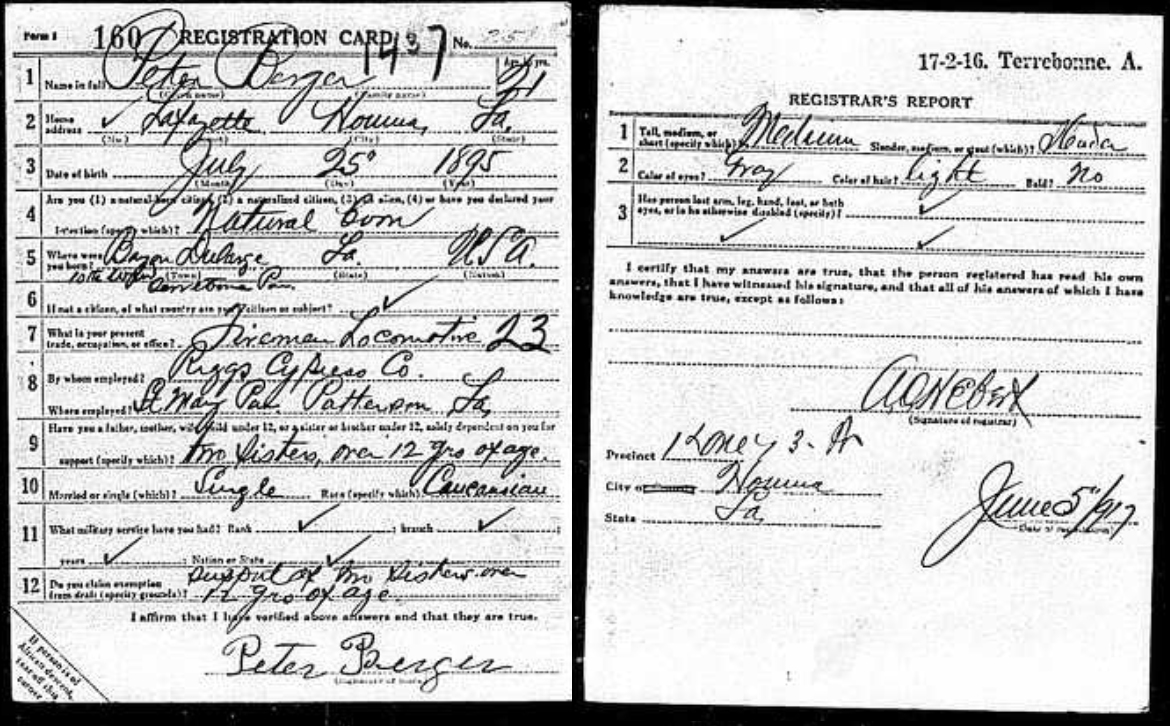 Form 1 160 REGISTRATION CARD 1437 No.
1 Name in full Peter Berger Age, in yrs. 21
(Given name) (Family name)
2 Home address Lafayette Houma, La.
(No.) (City) (State)
3 Date of birth July 25" 1895
(Month) (Day) (Year)
4 Are you (1) a natural-born citizen, (2) a naturalized citizen, (3) an alien, (4) or have you declared your
intention (specify which)? Natural born
5 Where were you born? Bayou Dularge La. U.S.A.
(Town) (State) (Nation)
10th Ward Terrebonne Par.
6 If not a citizen, of what country are you a citizen or subject?
7 What is your present trade, occupation, or office? Fireman Locomotive 23
8 By whom employed? Riggs Cypress Co.
Where employed? St Mary Par. Patterson, La,
9 Have you a father, mother, wife, child under 12, or a sister or brother under 12, solely dependent on you for
support (specify which)? two sisters, over 12 yrs of age.
10 Married or single (which)? Single Race (specify which)? Caucassian
11 What military service have you had? Rank ; branch ;
years ; Nation or State
12 Do you claim exemption from draft (specify grounds)? Support of two sisters over
12 yrs of age.
I affirm that I have verified above answers and that they are true.
Peter Berger
If person is of
African descent,
tear off this
corner
17-2-16. Terrebonne. A.
REGISTRAR'S REPORT
1 Tall, medium, or short (specify which)? Medium Slender, medium, or stout (which)?
2 Color of eyes? Gray Color of hair? light Bald? No
3 Has person lost arm, leg, hand, foot, or both
eyes, or is he otherwise disabled (specify)?
I certify that my answers are true, that the person registered has read his own
answers, that I have witnessed his signature, and that all of his answers of which I have
knowledge are true, except as follows:
(Signature of registrar)
Precinct
City of Houma
State La,
June 5"/917
(Date of registration)